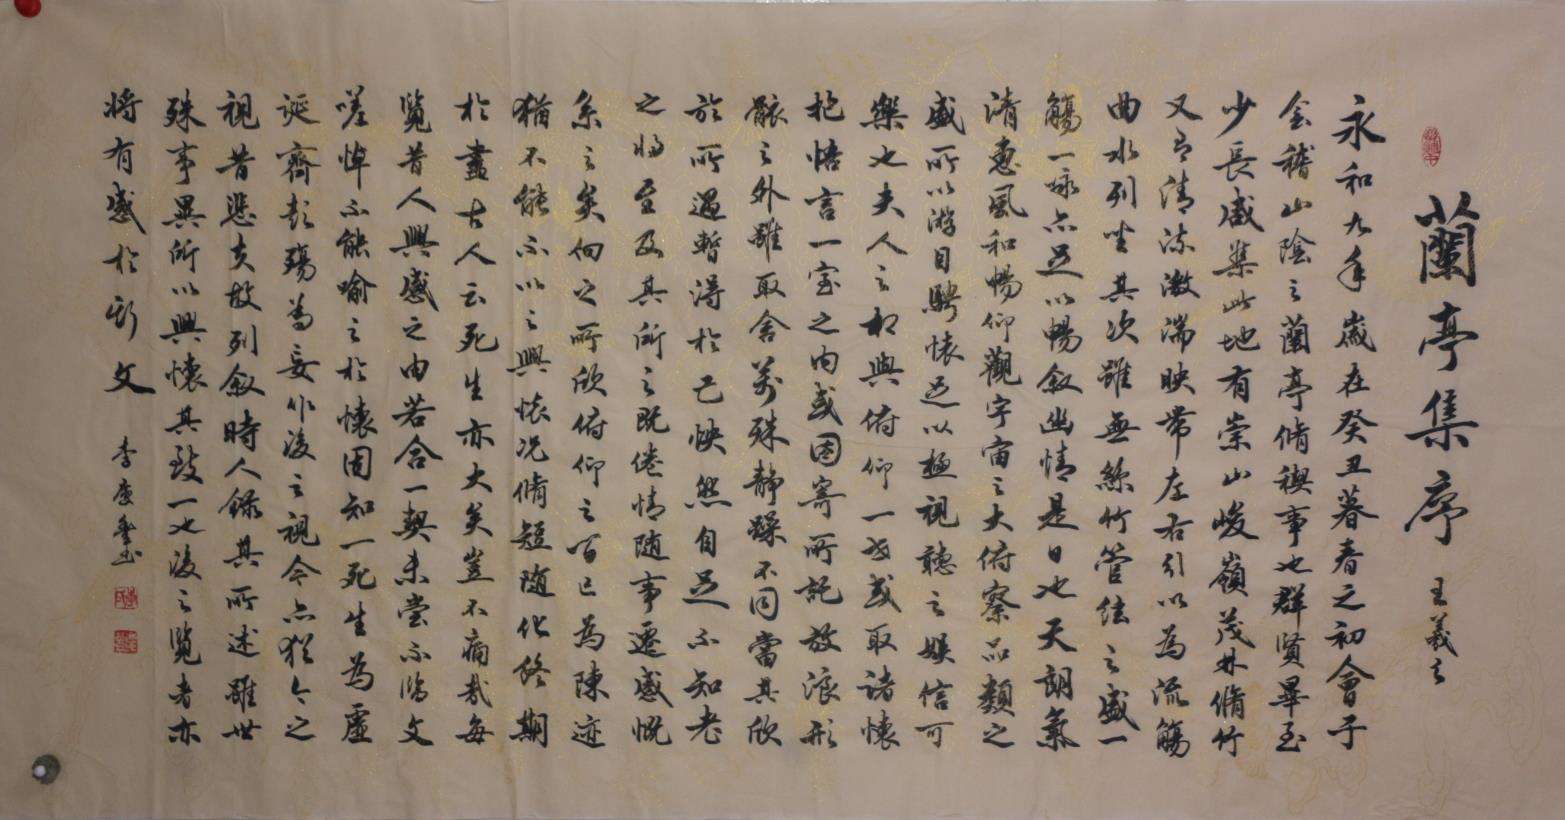 蘭亭集序
王羲之
永和九年歲在癸丑暮春之初會于
會稽山陰之蘭亭脩禊事也群賢畢至
少長咸集此地有崇山峻嶺茂林脩竹
又有清流激湍映帶左右引以為流觴
曲水列坐其次雖無絲竹管弦之盛一
觴一詠亦足以暢敘幽情是日也天朗氣
清惠風和暢仰觀宇宙之大俯察品類之
盛所以游目騁懷足以極視聽之娛信可
樂也夫人之相與俯仰一世或取諸懷
抱悟言一室之內或因寄所託放浪形
骸之外雖取舍萬殊靜躁不同當其欣
於所遇暫得於己怏然自足不知老
之將至及其所之既倦情随事遷感慨
系之矣向之所欣俯仰之間已為陳迹
猶不能不以之興懷況脩短随化終期
於盡古人云死生亦大矣豈不痛哉每
覽昔人興感之由若合一契未嘗不臨文
嗟悼不能喻之於懷固知一死生為虛
誕齊彭殤為妄作後之視今亦猶今之
視昔悲夫故列敘時人錄其所述雖世
殊事異所以興懷其致一也後之覽者亦
將有感於斯文
李慶书